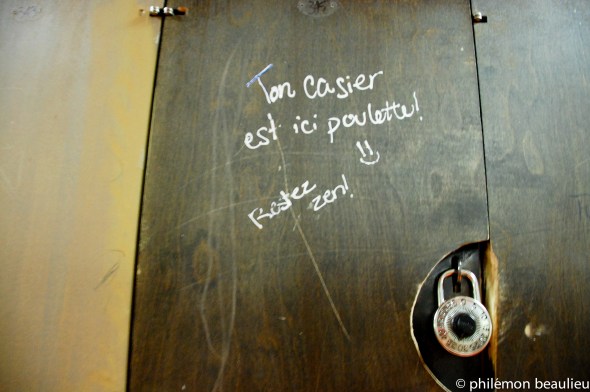 Ton casier
est ici poulette!
Restez
zen!
© philémon beaulieu